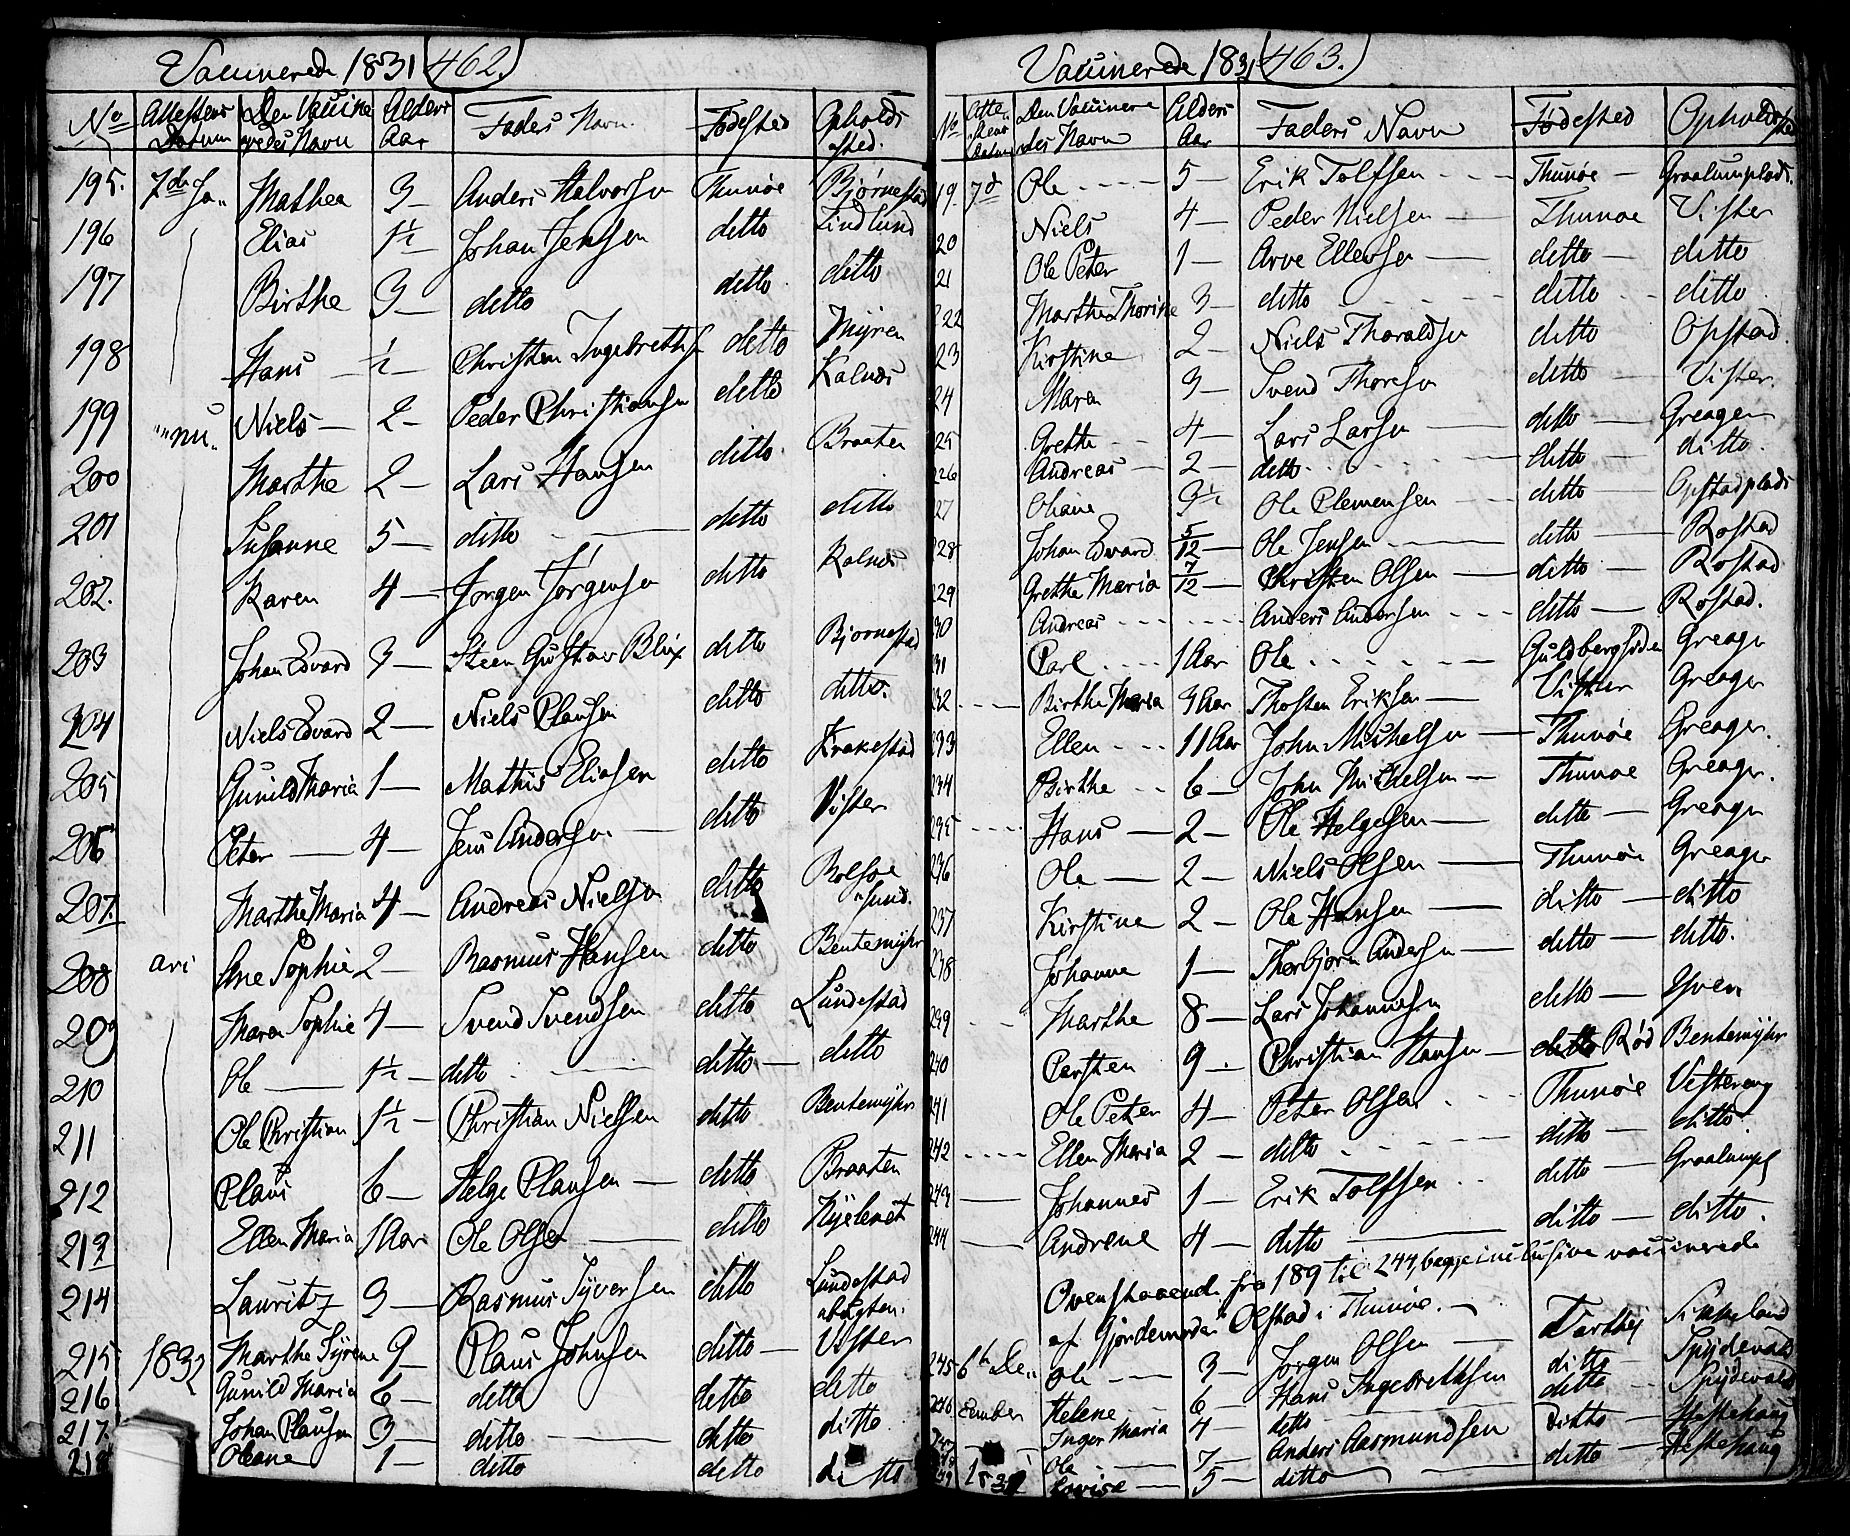 Vaccinerede 1831 462.
No Attestens Datum Den Vaccineredes Navn Alders Aar Faders Navn Fødested Opholdssted.
195. 7de Ja„ Mathea 3— Anders Halvorsen Thunøe Bjørnestad
196 Elias 1½— Johan Jensen ditto Lindlund
197 Birthe 3— ditto ditto ditto
198 Hans — ½— Christen Ingebrethsen ditto Myren
199 „nu„ Niels — 2— Peder Christiansen ditto Kalnes
200 Marthe 2— Lars Hansen ditto Braaten
201 Susanne 5— ditto ditto ditto
202. Karen 4— Jørgen Jørgensen ditto Kalnes
203 Johan Edvard 3— Steen Gustav Blix ditto Bjørnestad
204 Niels Edvard 2— Niels Clausen ditto ditto.
205 Gunild Maria 1— Mathis Eliasen ditto Krakestad
206 Peter — 4— Jens Andersen — ditto Vister
207. Marthe Maria 4— Andreas Nielsen ditto Rolfsøesund.
208 ari Ane Sophie 2— Rasmus Hansen ditto Bentemyhr
209 Maren Sophie 4— Svend Svendsen ditto Lundestad
210 Ole — 1½— ditto ditto — ditto
211 Ole Christian 1½— Christian Nielsen ditto Bentemyhr
212 Claus 6— Helge Clausen — ditto Braaten
213 Ellen Maria 1 Aar Ole Olsen — ditto
214 Lauritz 3— Rasmus Syversen ditto Lundestad
215 1832 Marthe Syrene 9— Claus Johnsen ditto — Vister
216 Gunild Maria 6— ditto ditto ditto
217 Johan Clausen 3— ditto — ditto ditto
218 Oleane 1— ditto ditto ditto
Vaccinerede 1831 463.
No Attestens Datum Den Vaccineredes Navn Alders Aar Faders Navn Fødested Opholdssted
19. 7d Ole 5— Erik Tolfsen Thunøe — Graalumplads.
20 Niels 4— Peder Nielsen — Thunøe Vister
21 Ole Peter 1— Arve Ellevsen — ditto — ditto
222 Marthe Thorine 3— ditto ditto ditto
23 Kirstine 2— Niels Thoraldsen ditto Opstad
24 Maren 3— Svend Thoresen ditto — Vister.
25 Grethe 4— Lars Larsen — ditto — Greager
226 Andreas — 2— ditto ditto — ditto.
27 Oliane 3½ Ole Clemensen ditto — Opstadplads
228 Johan Edvard 5/12— Ole Jensen ditto — Rostad
229 Grethe Maria 7/12— Christen Olsen — ditto — Rostad
230 Andreas Anders Andersen ditto — Rostad.
231 Carl 1 Aar Ole Greager
232 Birthe Maria 4 Aar Thosten Eriksen — Vister Greager
233 Ellen 11 Aar John Michelsen — Thunøe Greager.
234 Birthe 6— John Michelsen — Thunøe Greager.
235 Hans — 2— Ole Helgesen — ditto — Greager
236 Ole — 2— Niels Olsen — Thunøe Greager
237 Kirstine 2— Ole Hansen — ditto — ditto
238 Johanne 1— Thorbjørn Andersen — ditto — ditto.
239 Marthe 8— Lars Johannesen ditto — Yven
240 Carsten 9— Christian Hansen — ditto Rød Bentemyhr
241 Ole Peter 4— Peter Olsen Thunøe Vestereng
242 Ellen Maria 2— ditto ditto — ditto.
243 — Johannes 1— Erik Tolfsen ditto — Graalumpl
244 — Andrene 4— ditto — ditto — ditto.
Ovenstaaende fra 189 til 244, begge inclusive vaccinerede
af Gjordemoder Olstad i Thunøe.
245 6te De„ Ole — 3— Jørgen Olsen —
246 cember Helene 6— Hans Ingebrethsen ditto — Spydevold
Inger Maria 4— ditto ditto Spydevold
Ole 7— Anders Aasmundsen ditto — Hestehaug
249 Lovise — 5— ditto — ditto — Hestehaug